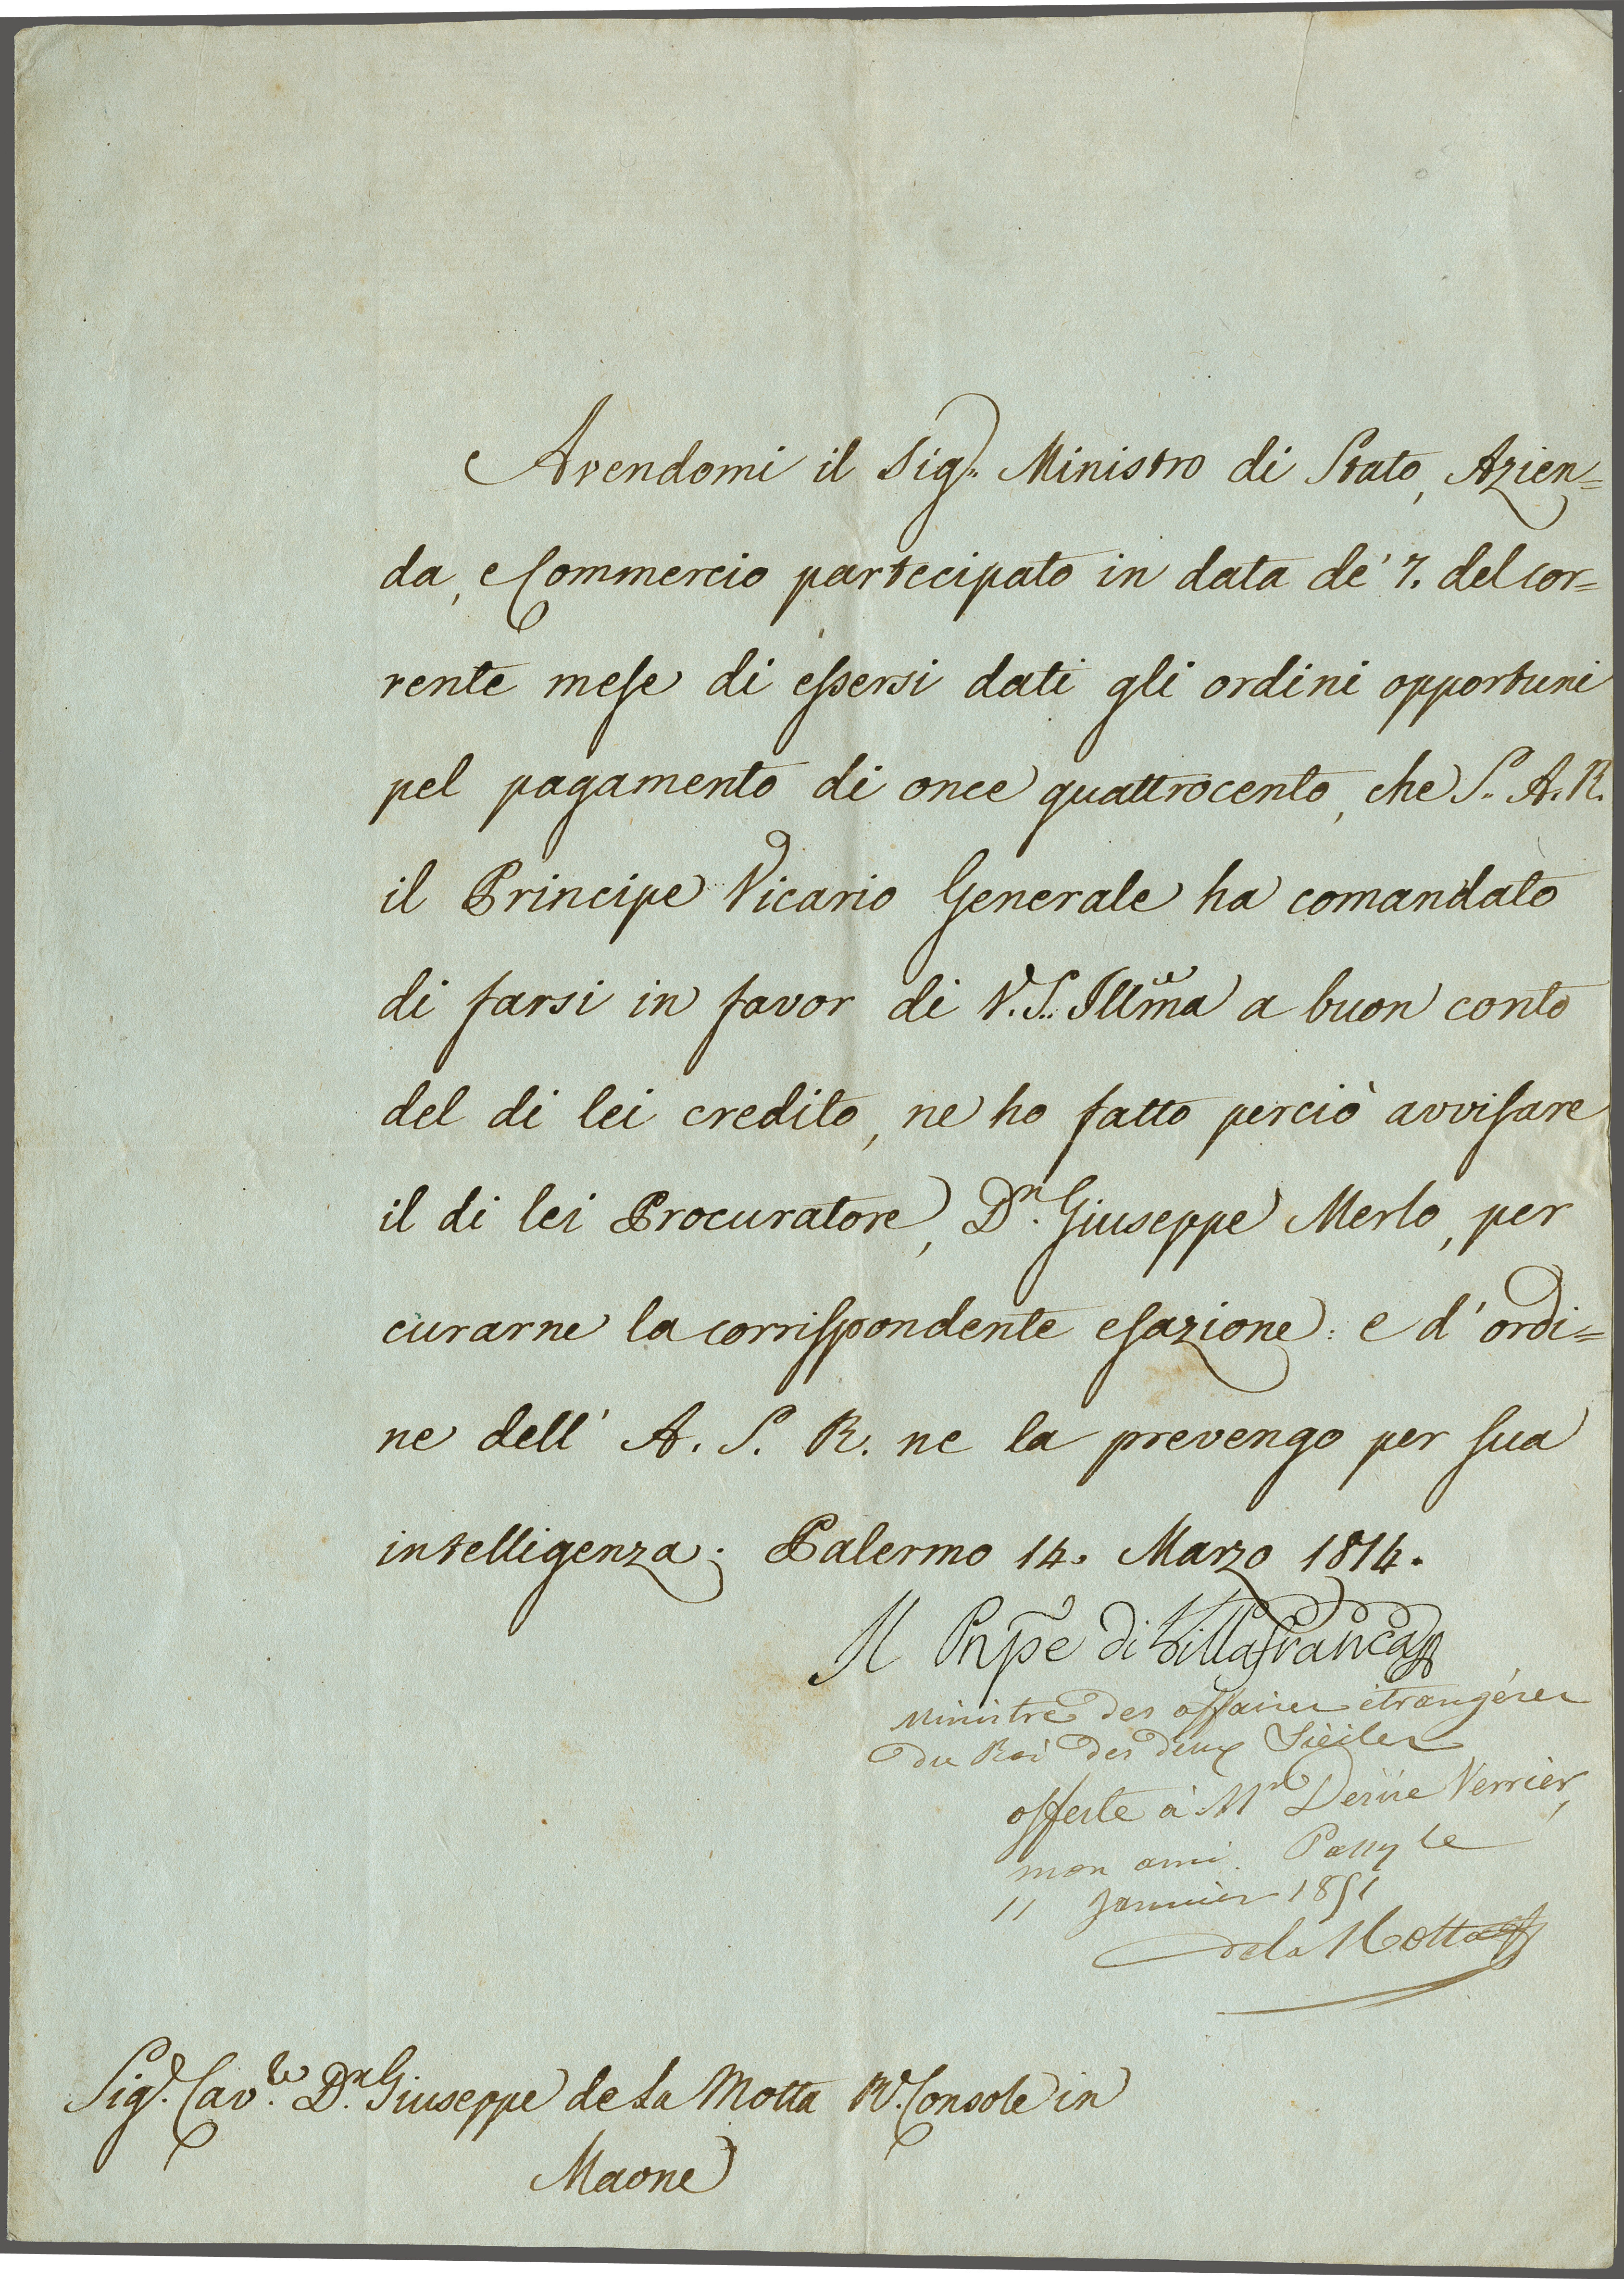 Avendomi il Sigr. Ministro di Stato, Azien=
da, e Commercio partecipato in data de' 7. del cor=
rente mese di essersi dati gli ordini opportuni
pel pagamento di once quattrocento, che S. A. R.
il Principe Vicario Generale ha comandato
di farsi in favor di V. S. Illma a buon conto
del di lei credito, ne ho fatto perciò avvisare
il di lei Procuratore, Dn. Giuseppe Merlo, per
curarne la corrispondente esazione: e d' ordi=
ne dell' A. S. R. ne la prevengo per sua
intelligenza. Palermo 14. Marzo 1814.
Il Pnpe di Villafranca
Ministre des affaires étrangéres
du Roi des deux Siciles
offerte à Mr Verrier,
mon ami. Passy le
11 Janvier 1851
de la Motta
Sigr. Cavle. Dn. Giuseppe de La Motta Rl. Console in
Maone